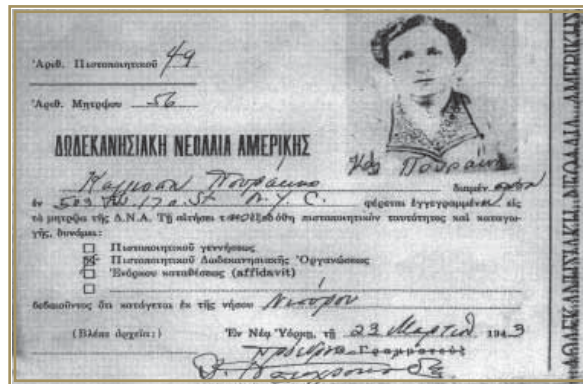 Ἀριθ. Πιστοποιητικοῦ 49
Ἀριθ. Μητρῴου 56
ΔΩΔΕΚΑΝΗΣΙΑΚΗ ΝΕΟΛΑΙΑ ΑΜΕΡΙΚΗΣ
Καλ Πουράκη
διαμέν
ἐν 509 W. 170 St N.Y.C. φέρεται ἐγγεγραμμέν εἰς
τὰ μητρῷα τῆς Δ.Ν.Α. Τῇ αἰτήσει τ ἐξεδόθη πιστοποιητικὸν ταυτότητος καὶ καταγω-
γῆς, δυνάμει:
Πιστοποιητικοῦ γεννήσεως
Πιστοποιητικοῦ Δωδεκανησιακῆς Ὀργανώσεως
Ἐνόρκου καταθέσεως (affidavit)
βεβαιοῦντος ὅτι κατάγεται ἐκ τῆς νήσου Νισύρου
(Βλέπε ἀρχεῖα:) Ἐν Νέᾳ Ὑόρκῃ, τῇ 23 Μαρτίου 1943
Γραμματεὺς
ΔΩΔΕΚΑΝΗΣΙΑΚΗ ΝΕΟΛΑΙΑ ΑΜΕΡΙΚΗΣ